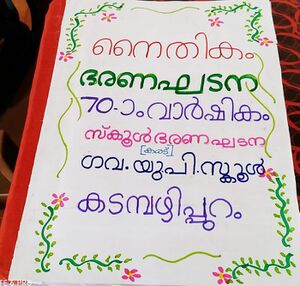 നൈതികം
ഭരണഘടന
70-ാം വാർഷികം
സ്കൂൾ ഭരണഘടന
[കരട്]
ഗവ. യു.പി. സ്കൂൾ
കടമ്പഴിപ്പുറം